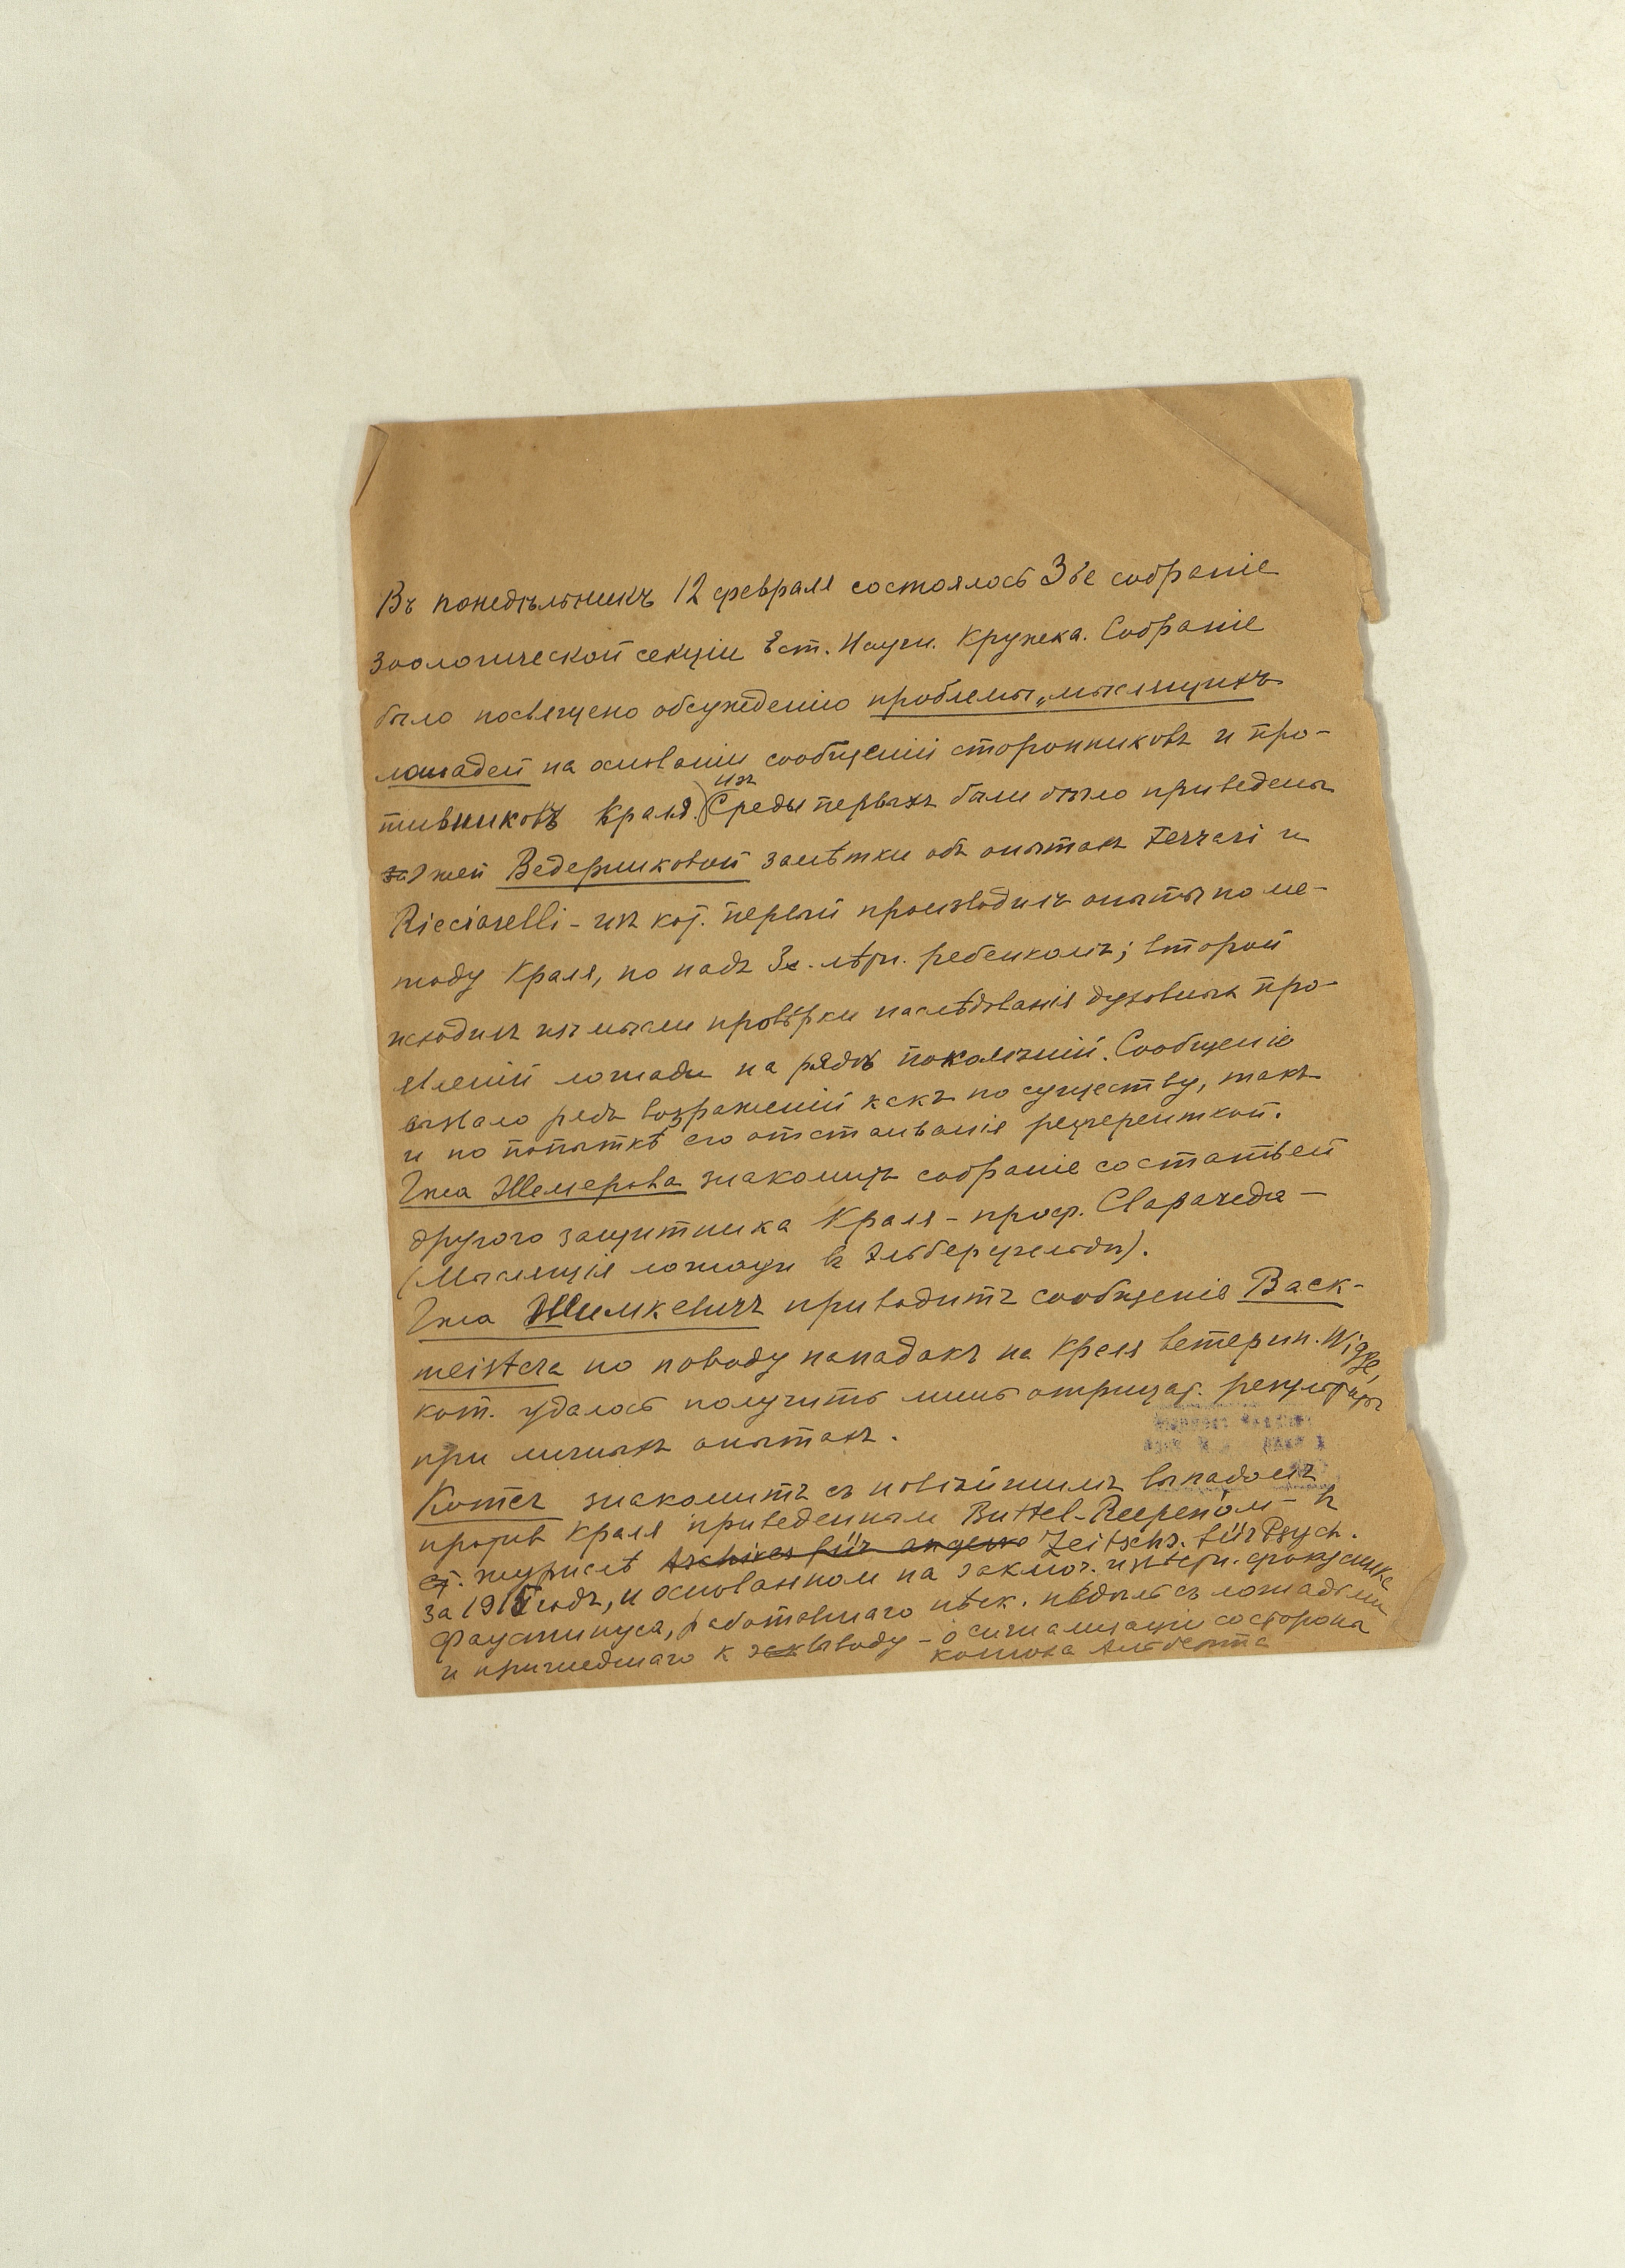 Въ понедѣльникъ 12 февраля состоялось 3ье собраніе
зоологической секціи Ест. Научн. Кружка. Собраніе
было посвящено обсужденію проблемы „мыслящихъ
лошадей на основаніи сообщеній сторонниковъ и про-
тивниковъ Краля. Изъ Среды первыхъ были было приведены
за Гжей Ведерниковой замѣтки объ опытах Ferrari и
Ricciarelli - изъ кот. первый производилъ опыты по ме-
тоду Краля, но надъ 3х. лѣтн. ребенкомъ; второй
исходилъ изъ мысли провѣрки наслѣдованія духовныхъ про-
явленій лошади на рядѣ поколѣній. Сообщеніе
вызвало рядъ возраженій какъ по существу, такъ
и по попыткѣ его отстаиванія референткой.
Гжа Шемерова знакомитъ собраніе со статьей
другого защитника Краля - проф. Claparede -
(Мыслящія лошади въ Эльберфельдѣ).
Гжа Шимкевичъ приводитъ сообщеніе Back-
meister'а по поводу нападокъ на Краля ветерин. Wigge,
кот. удалось получить лишь отрицат. результаты
при личныхъ опытахъ.
Котсъ знакомитъ съ новѣйшимъ выпадомъ
против Краля приведеннымъ Buttel-Reepen'ом - въ
ст. журналѣ Archives für angew Zeitschr. für Psych.
за 1915 годъ, и основанном на заключ. интерн. фокусника
Фаустинуса, работавшаго нѣск. недѣль съ лошадьми
и пришедшаго к выводу - о сигнализаціи со стороны
конюха Альберта